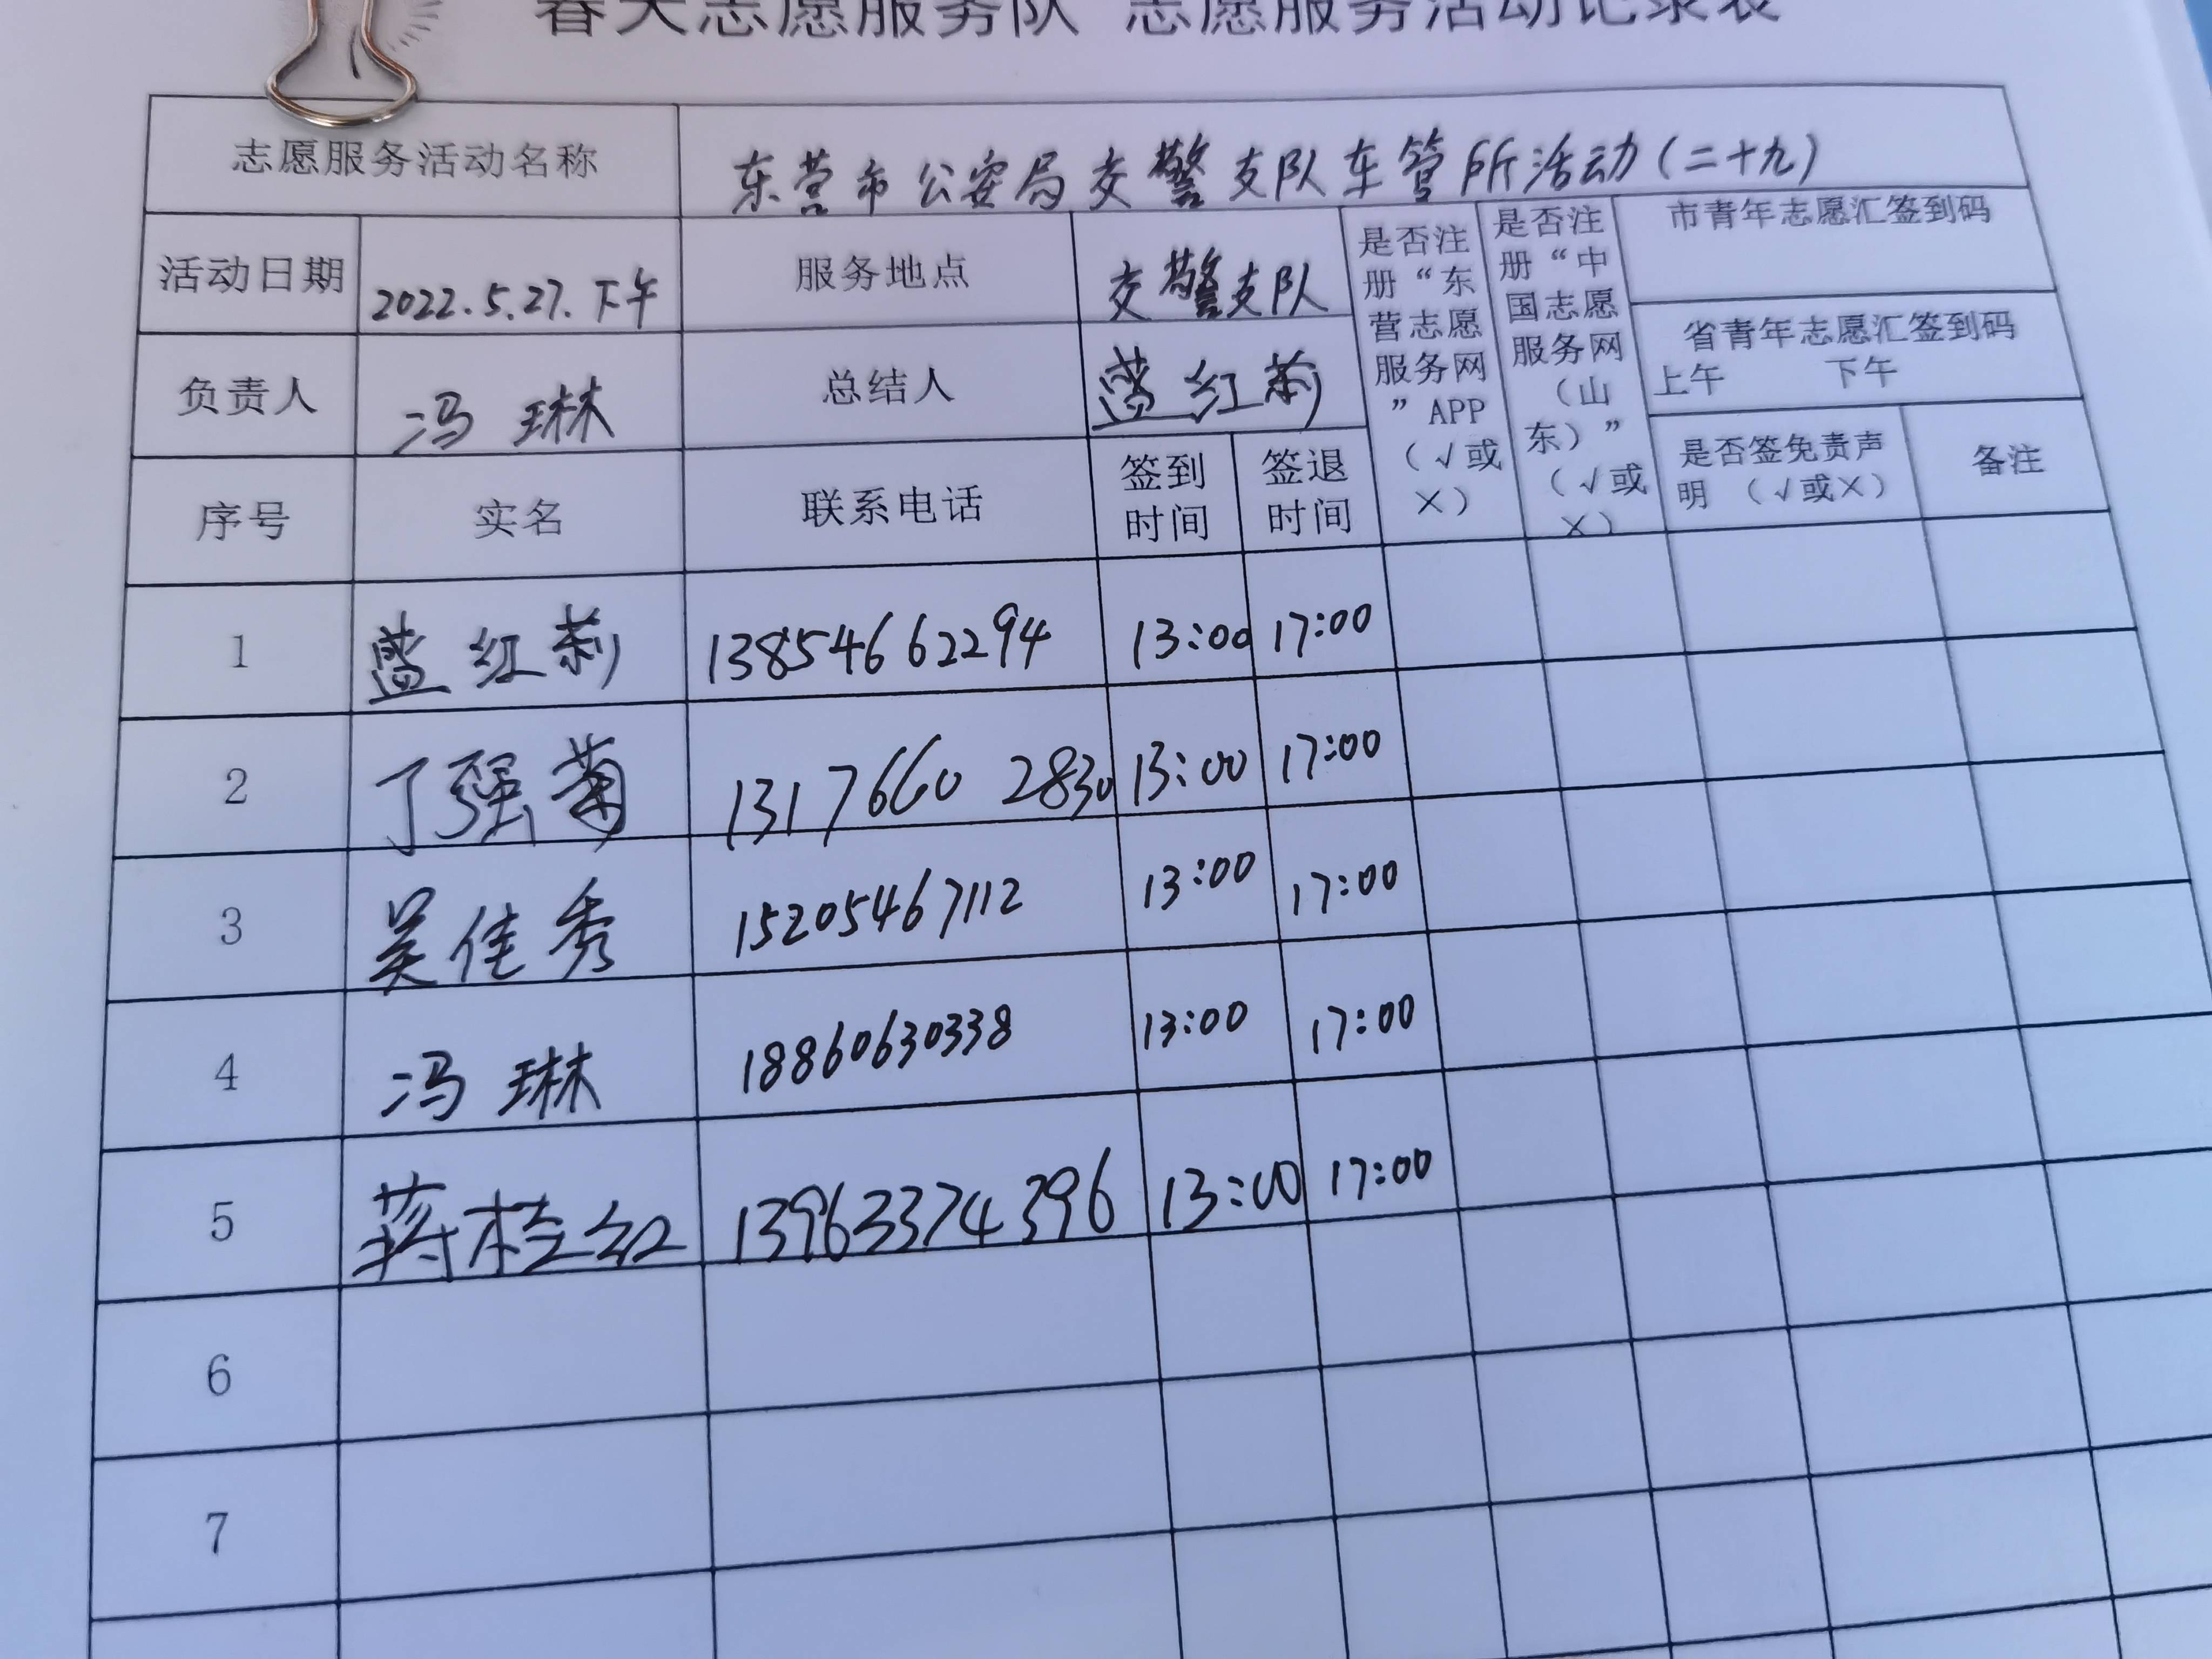 春天志愿服务队 志愿服务活动记录表
志愿服务活动名称 东营市公安局交警支队车管所活动(二十九)
活动日期 2022.5.27.下午 服务地点 交警支队
是否注册“东营志愿服务网”APP（√或×）
是否注册“中国志愿服务网（山东）”（√或×）
市青年志愿汇签到码
省青年志愿汇签到码
上午 下午
负责人 冯琳 总结人 蓝红莉
是否签免责声明 （√或×） 备注
序号 实名 联系电话 签到时间 签退时间
1 蓝红莉 13854662294 13:00 17:00
2 丁强菊 13176602830 13:00 17:00
3 吴佳秀 15205467112 13:00 17:00
4 冯琳 18860630338 13:00 17:00
5 蒋桂红 13963374396 13:00 17:00
6
7